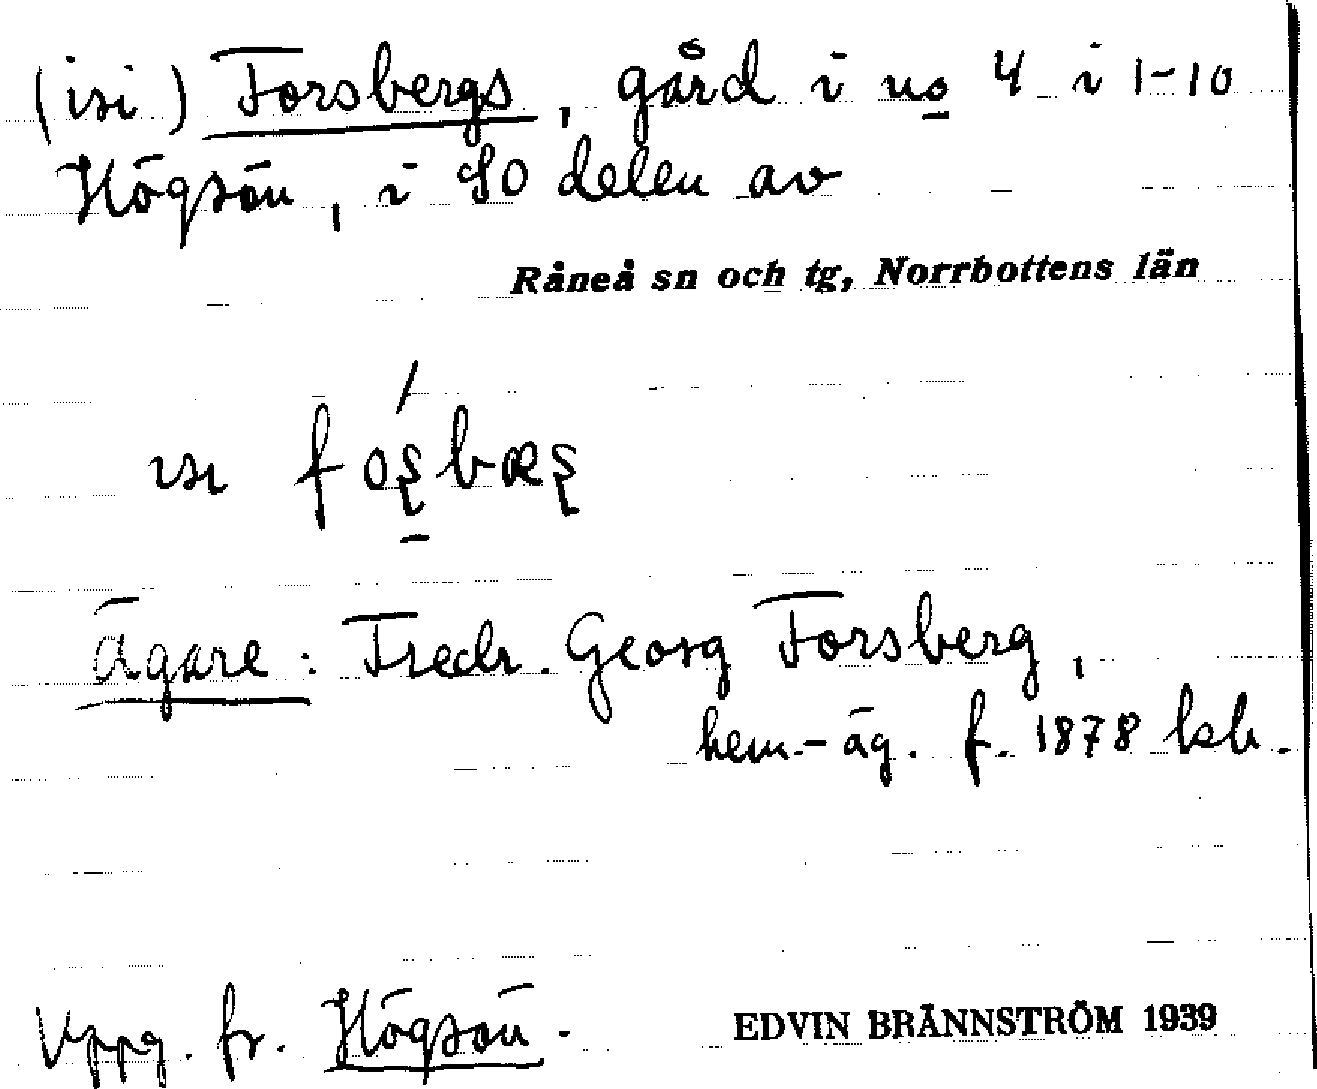 (isi) Forsbergs, gård i no 4 i 1-10
Högsön, i SO delen av
Råneå sn och tg, Norrbottens län
ısı
Ägare: Fredr. Georg Forsberg,
hem.-äg. f. 1878 ksb.
Uppg. fr. Högsön.
EDVIN BRÄNNSTRÖM 1939